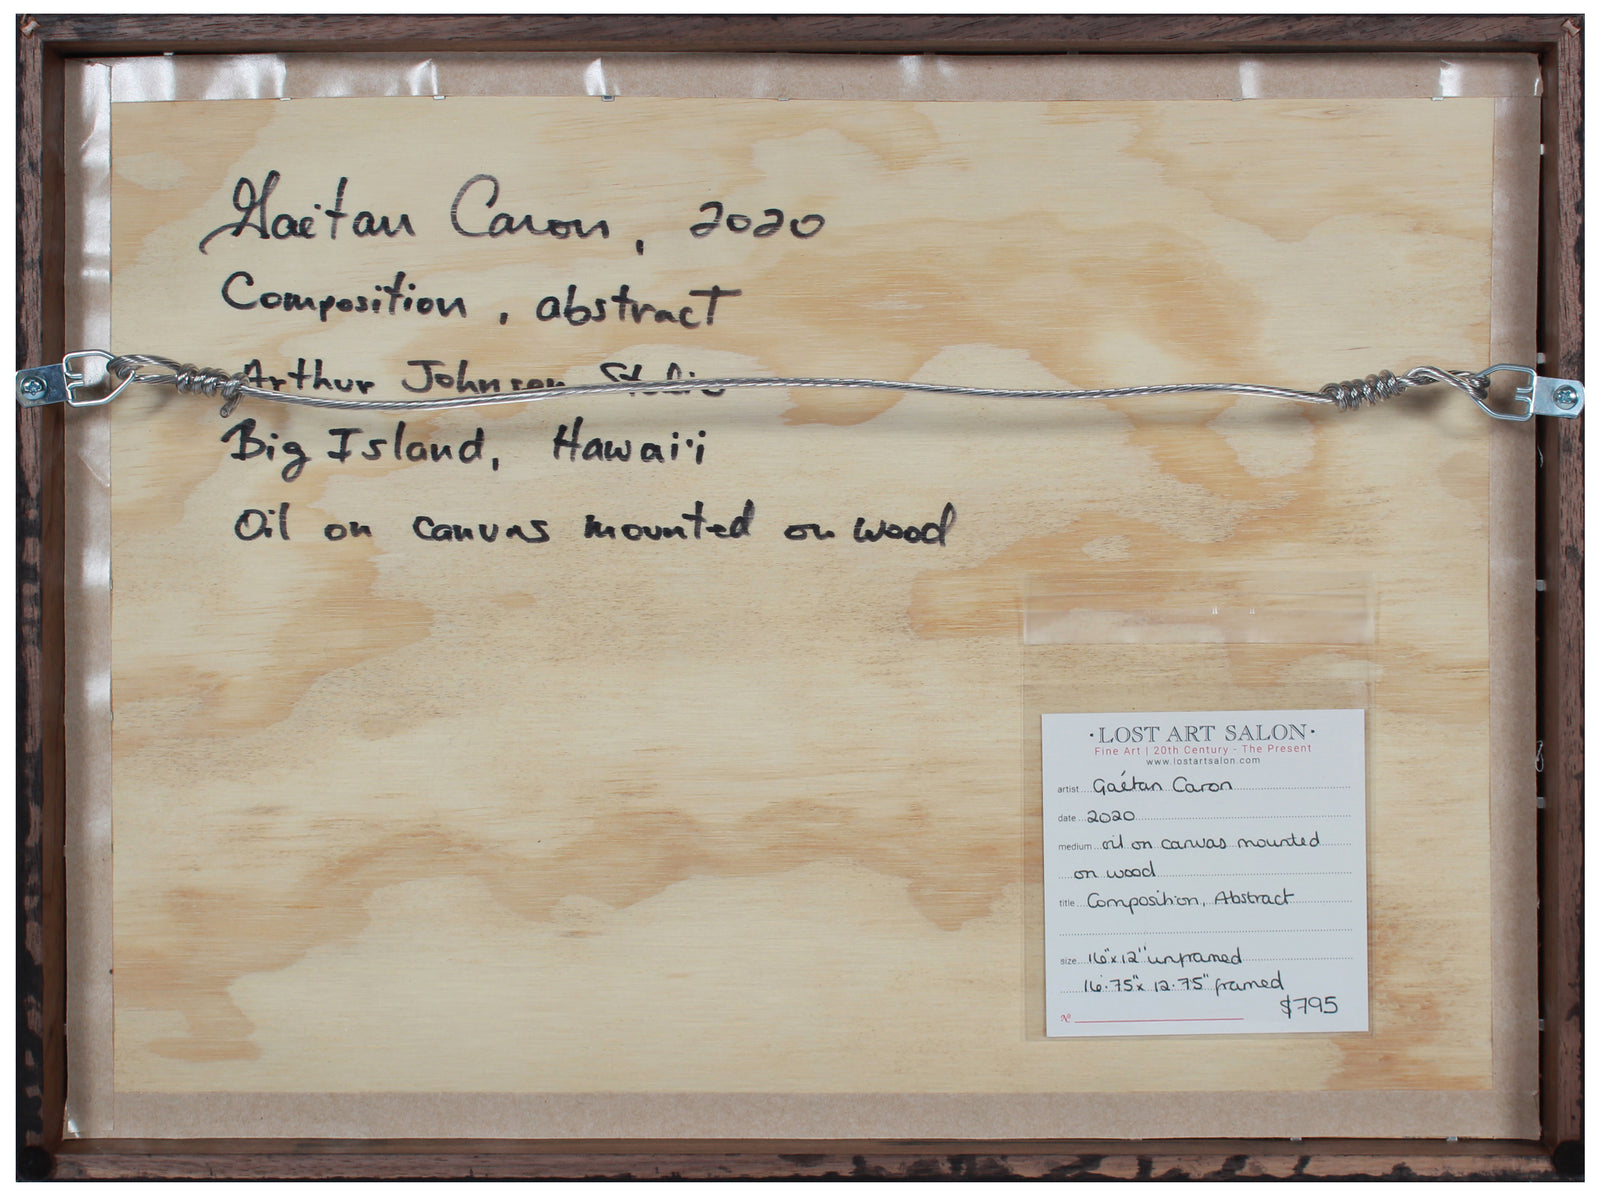 Gaétan Caron, 2020
Composition, abstract
Arthur Johnson Studio
Big Island, Hawai'i
Oil on canvas mounted on wood
·LOST ART SALON·
Fine Art | 20th Century - The Present
www.lostartsalon.com
artist Gaétan Caron
date 2020
medium oil on canvas mounted
on wood
title Composition, Abstract
size 16"x12" unframed
16.75"x 12.75" framed
$795
Nº